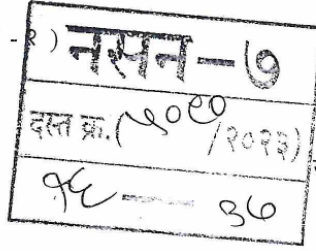 -२) नसन-७
दस्त क्र.(५०९० /२०२३)
१६ — ३७